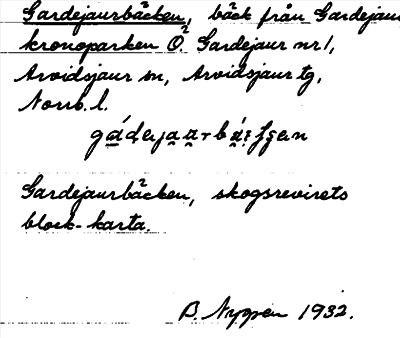 Gardejaurbäcken, bäck från Gardejaur
kronoparken Ö² Gardejaur nr 1,
Arvidsjaur sn, Arvidsjaur tg,
Norrb. l.
Gardejaurbäcken, skogsrevirets
block-karta.
B. Nygren 1932.